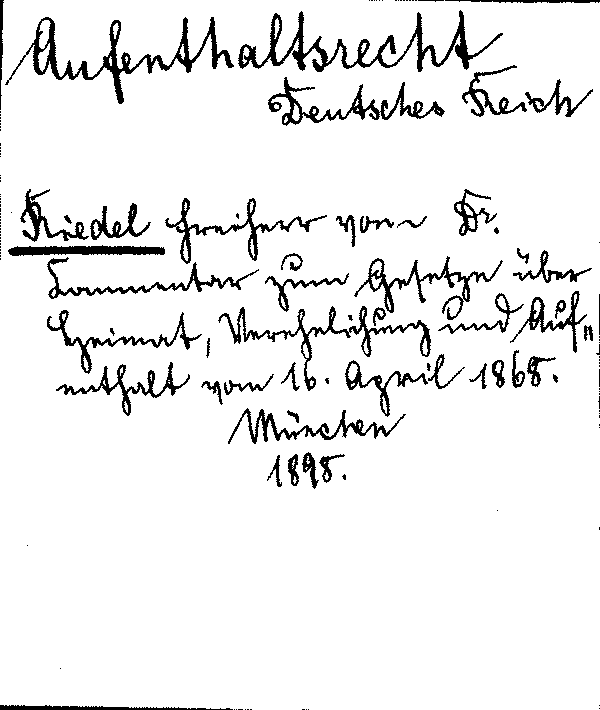 Aufenthaltsrecht
Deutsches Reich
Riedel Freiherr von Dr.
Kommentar zum Gesetze über
Heimat, Verehelichung und Auf„
enthalt vom 16. April 1868.
München
1898.